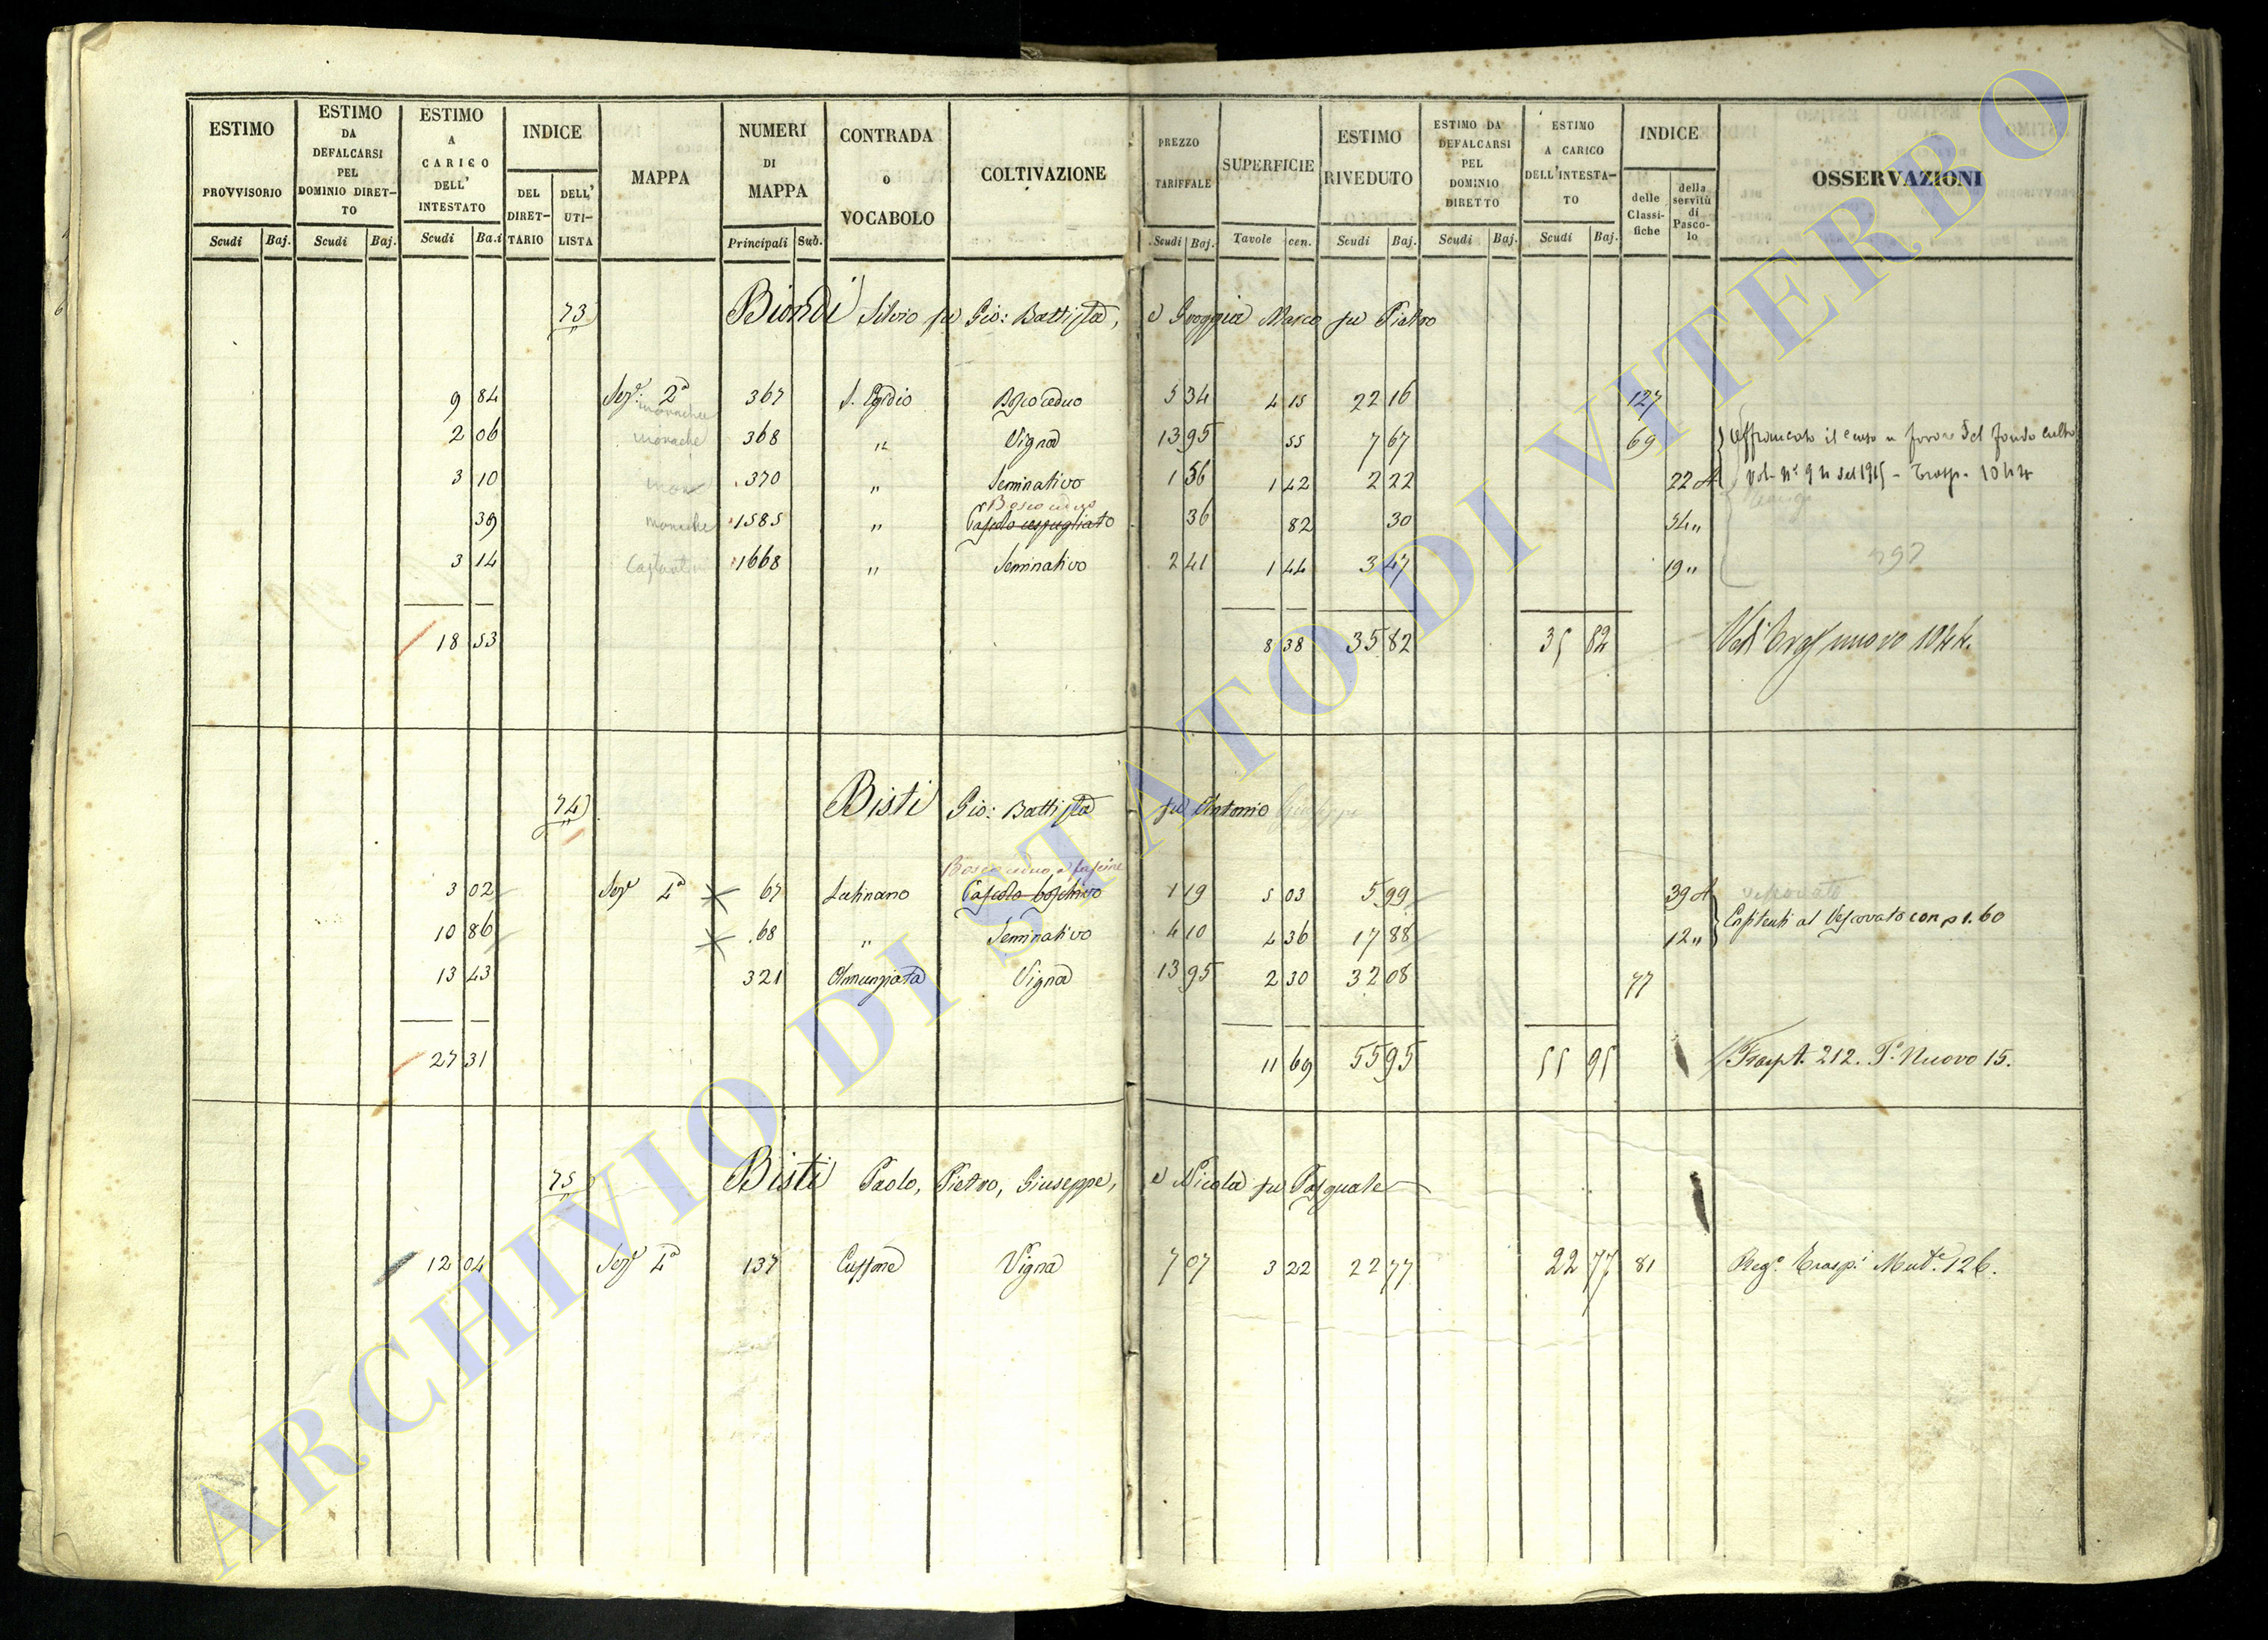 ESTIMO PROVVISORIO
Scudi Baj.
ESTIMO DA DEFALCARSI PEL DOMINIO DIRETTO
Scudi Baj.
ESTIMO A CARICO DELL' INTESTATO
Scudi Ba.i
INDICE
DEL DIRETTARIO
DELL' UTILISTA
MAPPA
NUMERI DI MAPPA
Principali Sub.
CONTRADA o VOCABOLO
COLTIVAZIONE
PREZZO TARIFFALE
Scudi Baj.
SUPERFICIE
Tavole cen.
ESTIMO RIVEDUTO
Scudi Baj.
ESTIMO DA DEFALCARSI PEL DOMINIO DIRETTO
Scudi Baj.
ESTIMO A CARICO DELL'INTESTATO
Scudi Baj.
INDICE
delle Classifiche
della servitù di Pascolo
OSSERVAZIONI
73 Biondi Silvio fu Gio: Battista, e Groggia Marco fu Pietro
9 84 Sez.e 2a monache 367 S. Egidio Bosco ceduo 5 34 4 15 22 16 127
2 06 monache 368 " Vigna 13 95 55 7 67 69 Affrancato il censo a favore del fondo culto
3 10 mon 370 " Seminativo 1 56 1 42 2 22 22 A Vol. N° 94 del 1915 - Trasp. 1044
Bosco ceduo
39 monache 1585 " Pascolo cespugliato 36 82 30 54 "
3 14 1668 " Seminativo 2 41 1 44 3 47 19 " 397
18 53 8 38 35 82 35 82 Vedi Trasp nuovo 1044.
74 Bisti Gio: Battista fu Antonio Giuseppe
Bosco ceduo a fascine
3 02 Sez.e 4a 67 Latinano Pascolo boschivo 1 19 5 03 5 99 39 A vescovato
10 86 68 " Seminativo 4 10 4 36 17 88 12 " al Vescovato con p 1.60
13 43 321 Annunziata Vigna 13 95 2 30 32 08 77
27 31 11 69 55 95 55 95 Traspt. 212. P. Nuovo 15.
75 Bisti Paolo, Pietro, Giuseppe, e Nicola fu Pasquale
12 04 Sez.e 4a 137 Vigna 7 07 3 22 22 77 22 77 81 Reg.o Trasp.i Mut.e 126.
ARCHIVIO DI STATO DI VITERBO